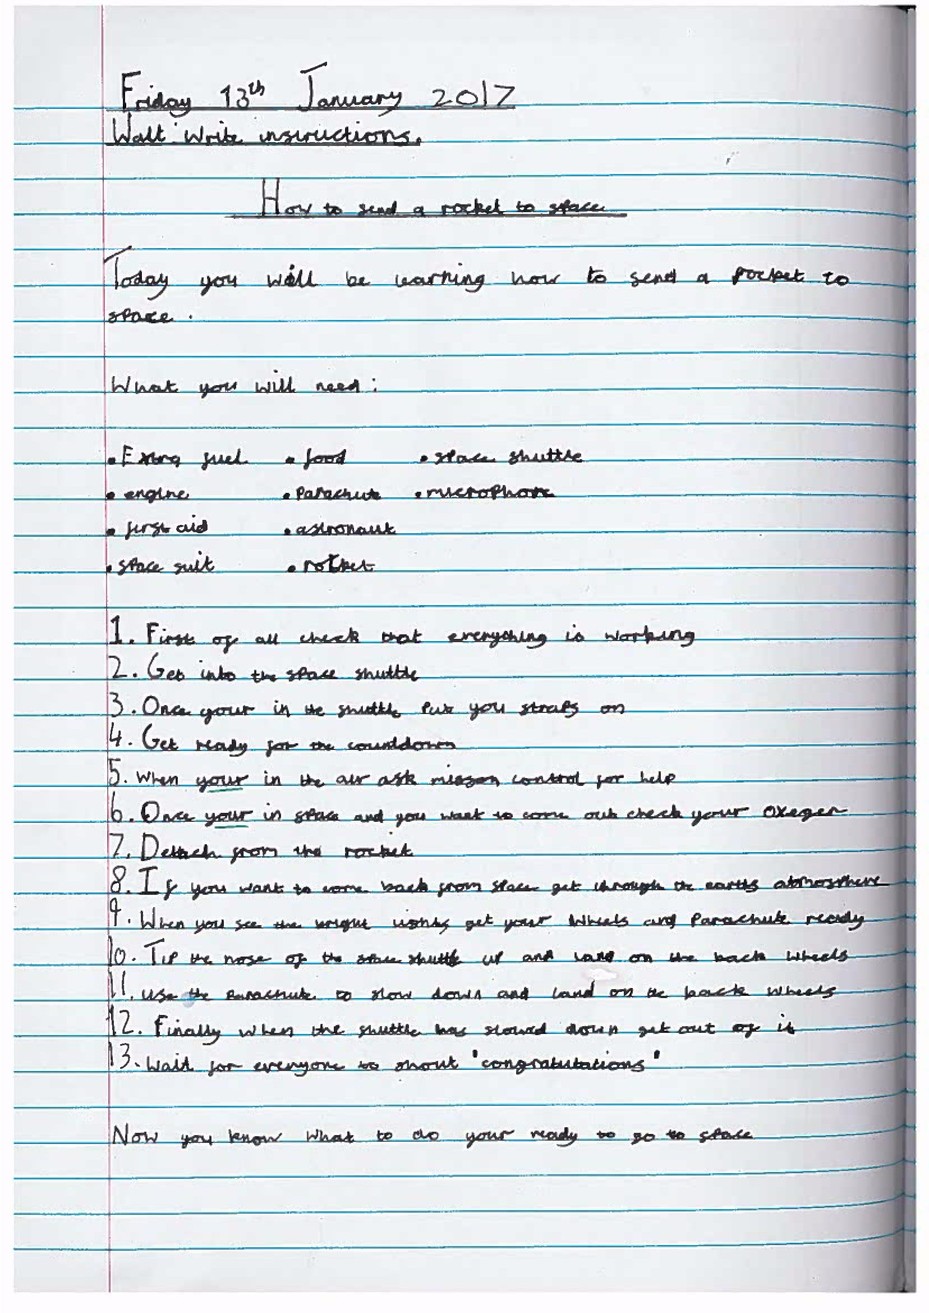 Friday 13th January 2017
Walt: Write instructions.
How to send a rocket to space
Today you will be learning how to send a rocket to
space.
What you will need:
• Extra fuel • food • space shuttle
• engine • Parachute • microphone
• first aid • astronaut
• space suit • rocket
1. First of all check that everything is working
2. Get into the space shuttle
3. Once your in the shuttle put you straps on
4. Get ready for the countdown
5. When your in the air ask misson control for help
6. Once your in space and you want to come out check your oxegen
7. Dettach from the rocket
8. If you want to come back from space get through the earths atmosphere
9. When you see the wright lights get your wheels and Parachute ready
10. Tip the nose of the space shuttle up and land on the back wheels
11. use the Parachute to slow down and land on the back wheels
12. Finally when the shuttle has slowed down get out of it
13. Wait for everyone to shout "congratutations"
Now you know what to do your ready to go to space